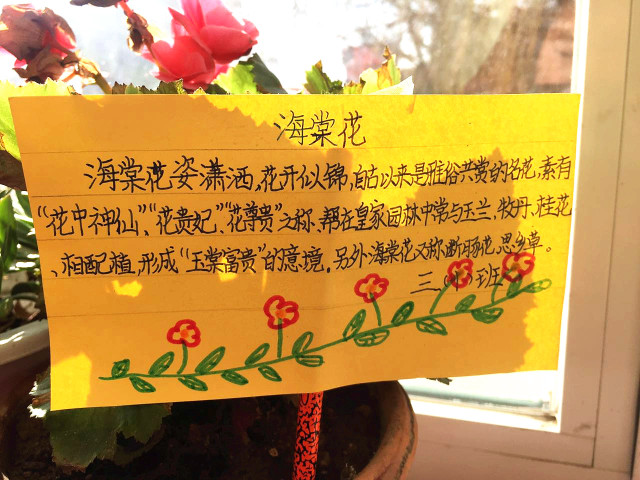 海棠花
海棠花姿潇洒,花开似锦,自古以来是雅俗共赏的名花,素有
“花中神仙”、“花贵妃”、“花尊贵”之称,帮在皇家园林中常与玉兰、牧丹、桂花
、相配植,形成“玉棠富贵”的意境。另外海棠花又称断肠花、思乡草。
三、(1)班